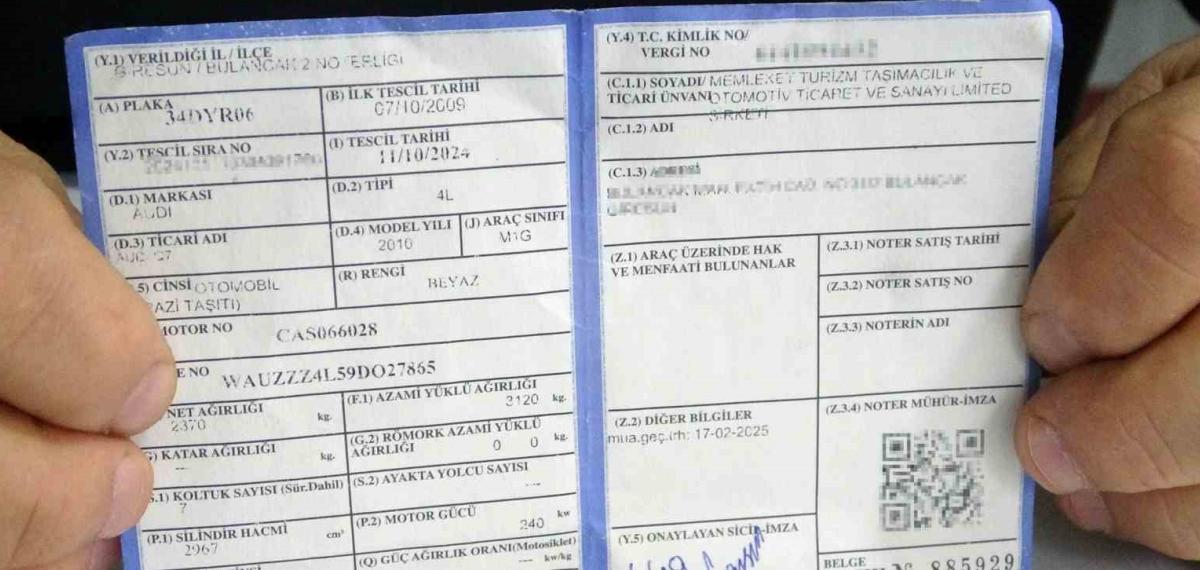 (Y.1) VERİLDİĞİ İL / İLÇE
GİRESUN / BULANCAK 2 NOTERLİĞİ
(A) PLAKA
34DYR06
(B) İLK TESCİL TARİHİ
07/10/2009
(Y.2) TESCİL SIRA NO
(I) TESCİL TARİHİ
11/10/2024
(D.1) MARKASI
AUDI
(D.2) TİPİ
4L
(D.3) TİCARİ ADI
(D.4) MODEL YILI
2010
(J) ARAÇ SINIFI
M1G
5) CİNSİ OTOMOBİL
AZİ TAŞITI)
(R) RENGİ
BEYAZ
MOTOR NO
CAS066028
E NO
WAUZZZ4L59DO27865
NET AĞIRLIĞI
2370 kg.
(F.1) AZAMİ YÜKLÜ AĞIRLIĞI
3120 kg.
) KATAR AĞIRLIĞI
--- kg.
(G.2) RÖMORK AZAMİ YÜKLÜ
AĞIRLIĞI 0 0 kg.
S.1) KOLTUK SAYISI (Sür.Dahil)
7
(S.2) AYAKTA YOLCU SAYISI
---
(P.1) SİLİNDİR HACMİ
2967 cm³
(P.2) MOTOR GÜCÜ
240 kw
(Q) GÜÇ AĞIRLIK ORANI(Motosiklet)
--- kw/kg
(Y.4) T.C. KİMLİK NO/
VERGİ NO
(C.1.1) SOYADI/ MEMLEKET TURİZM TAŞIMACILIK VE
TİCARİ ÜNVANI OTOMOTİV TİCARET VE SANAYİ LİMİTED
ŞİRKETİ
(C.1.2) ADI
(C.1.3) ADRESİ
(Z.1) ARAÇ ÜZERİNDE HAK
VE MENFAATİ BULUNANLAR
(Z.3.1) NOTER SATIŞ TARİHİ
(Z.3.2) NOTER SATIŞ NO
(Z.3.3) NOTERİN ADI
(Z.2) DİĞER BİLGİLER
mua.geç.trh: 17-02-2025
(Z.3.4) NOTER MÜHÜR-İMZA
(Y.5) ONAYLAYAN SİCİL-İMZA
BELGE
885929